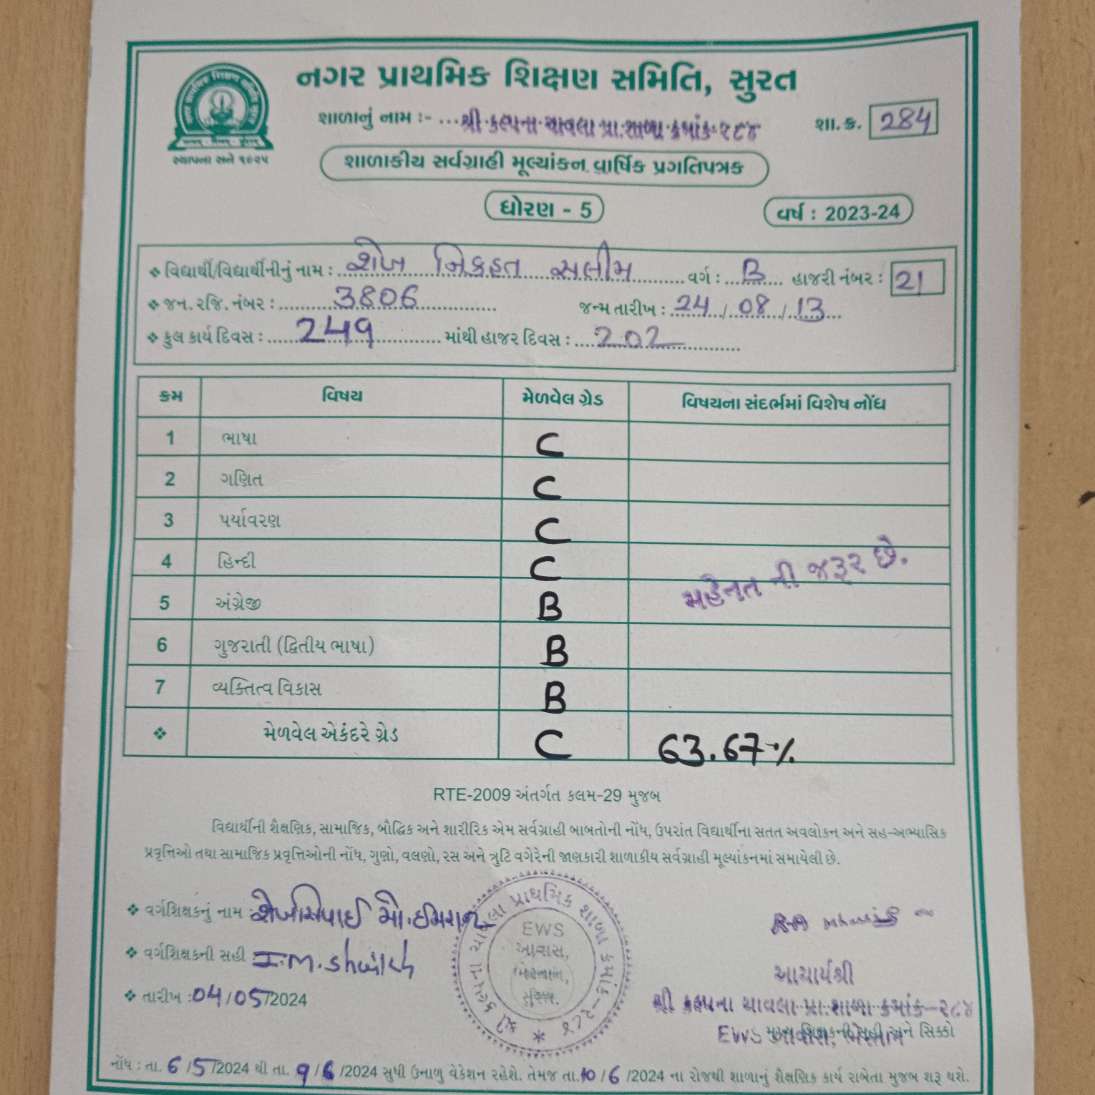 નગર પ્રાથમિક શિક્ષણ સમિતિ, સુરત
શાળાનું નામ :- ...શ્રી કલ્પના ચાવલા પ્રા.શાળા ક્રમાંક-૨૮૪
શા.ક્ર. 284
સ્થાપના સને ૧૯૨૫
શાળાકીય સર્વગ્રાહી મૂલ્યાંકન વાર્ષિક પ્રગતિપત્રક
ધોરણ - 5
વર્ષ : 2023-24
❖ વિદ્યાર્થી/વિદ્યાર્થીનીનું નામ : શેખ મિફ્રહત સલીમ વર્ગ : B હાજરી નંબર : 21
❖ જન. રજિ. નંબર : 3806 જન્મ તારીખ : 24/08/13
❖ કુલ કાર્ય દિવસ : 249 માંથી હાજર દિવસ : 202
ક્રમ વિષય મેળવેલ ગ્રેડ વિષયના સંદર્ભમાં વિશેષ નોંધ
1 ભાષા C
2 ગણિત C
3 પર્યાવરણ C
4 હિન્દી C
મહેનત ની જરૂર છે.
5 અંગ્રેજી B
6 ગુજરાતી (દ્વિતીય ભાષા) B
7 વ્યક્તિત્વ વિકાસ B
❖ મેળવેલ એકંદરે ગ્રેડ C 63.67%
RTE-2009 અંતર્ગત કલમ-29 મુજબ
વિદ્યાર્થીની શૈક્ષણિક, સામાજિક, બૌદ્ધિક અને શારીરિક એમ સર્વગ્રાહી બાબતોની નોંધ, ઉપરાંત વિદ્યાર્થીના સતત અવલોકન અને સહ-અભ્યાસિક
પ્રવૃત્તિઓ તથા સામાજિક પ્રવૃત્તિઓની નોંધ, ગુણો, વલણો, રસ અને ત્રુટિ વગેરેની જાણકારી શાળાકીય સર્વગ્રાહી મૂલ્યાંકનમાં સમાયેલી છે.
❖ વર્ગશિક્ષકનું નામ શેખસિપાઈ મો.ઈમરાન
❖ વર્ગશિક્ષકની સહી I.M.Shaikh
❖ તારીખ :04/05/2024
શ્રી કલ્પના ચાવલા પ્રાથમિક શાળા ક્રમાંક-૨૮૪
EWS
આવાસ,
આચાર્યશ્રી
શ્રી કલ્પના ચાવલા પ્રા.શાળા ક્રમાંક-૨૮૪
EWS આવાસ,
નોંધ : તા. 6/5/2024 થી તા. 9/6/2024 સુધી ઉનાળુ વેકેશન રહેશે. તેમજ તા.10/6/2024 ના રોજથી શાળાનું શૈક્ષણિક કાર્ય રાબેતા મુજબ શરૂ થશે.